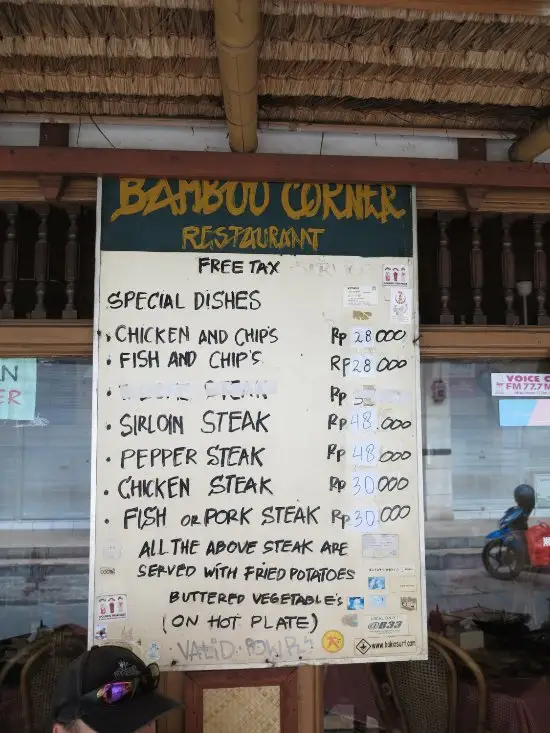 BAMBOO CORNER
RESTAURANT
FREE TAX
SPECIAL DISHES
• CHICKEN AND CHIP'S Rp 28 000
• FISH AND CHIP'S Rp 28 000
• STEAK Rp
• SIRLOIN STEAK Rp 48.000
• PEPPER STEAK Rp 48.000
• CHICKEN STEAK Rp 30 000
• FISH OR PORK STEAK Rp 30.000
ALL THE ABOVE STEAK ARE
SERVED WITH FRIED POTATOES
BUTTERED VEGETABLE'S
(ON HOT PLATE)
@B33
www.baliosurf.com
AN
ER
VOICE
FM 77.7 M